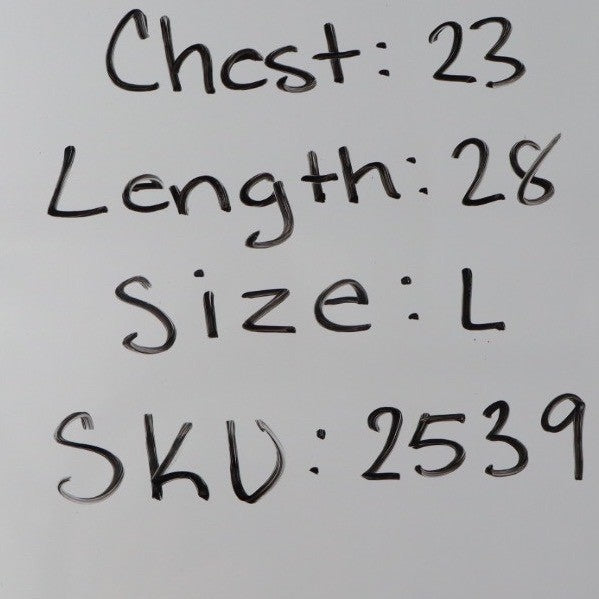 Chest: 23
Length: 28
Size: L
SKU: 2539